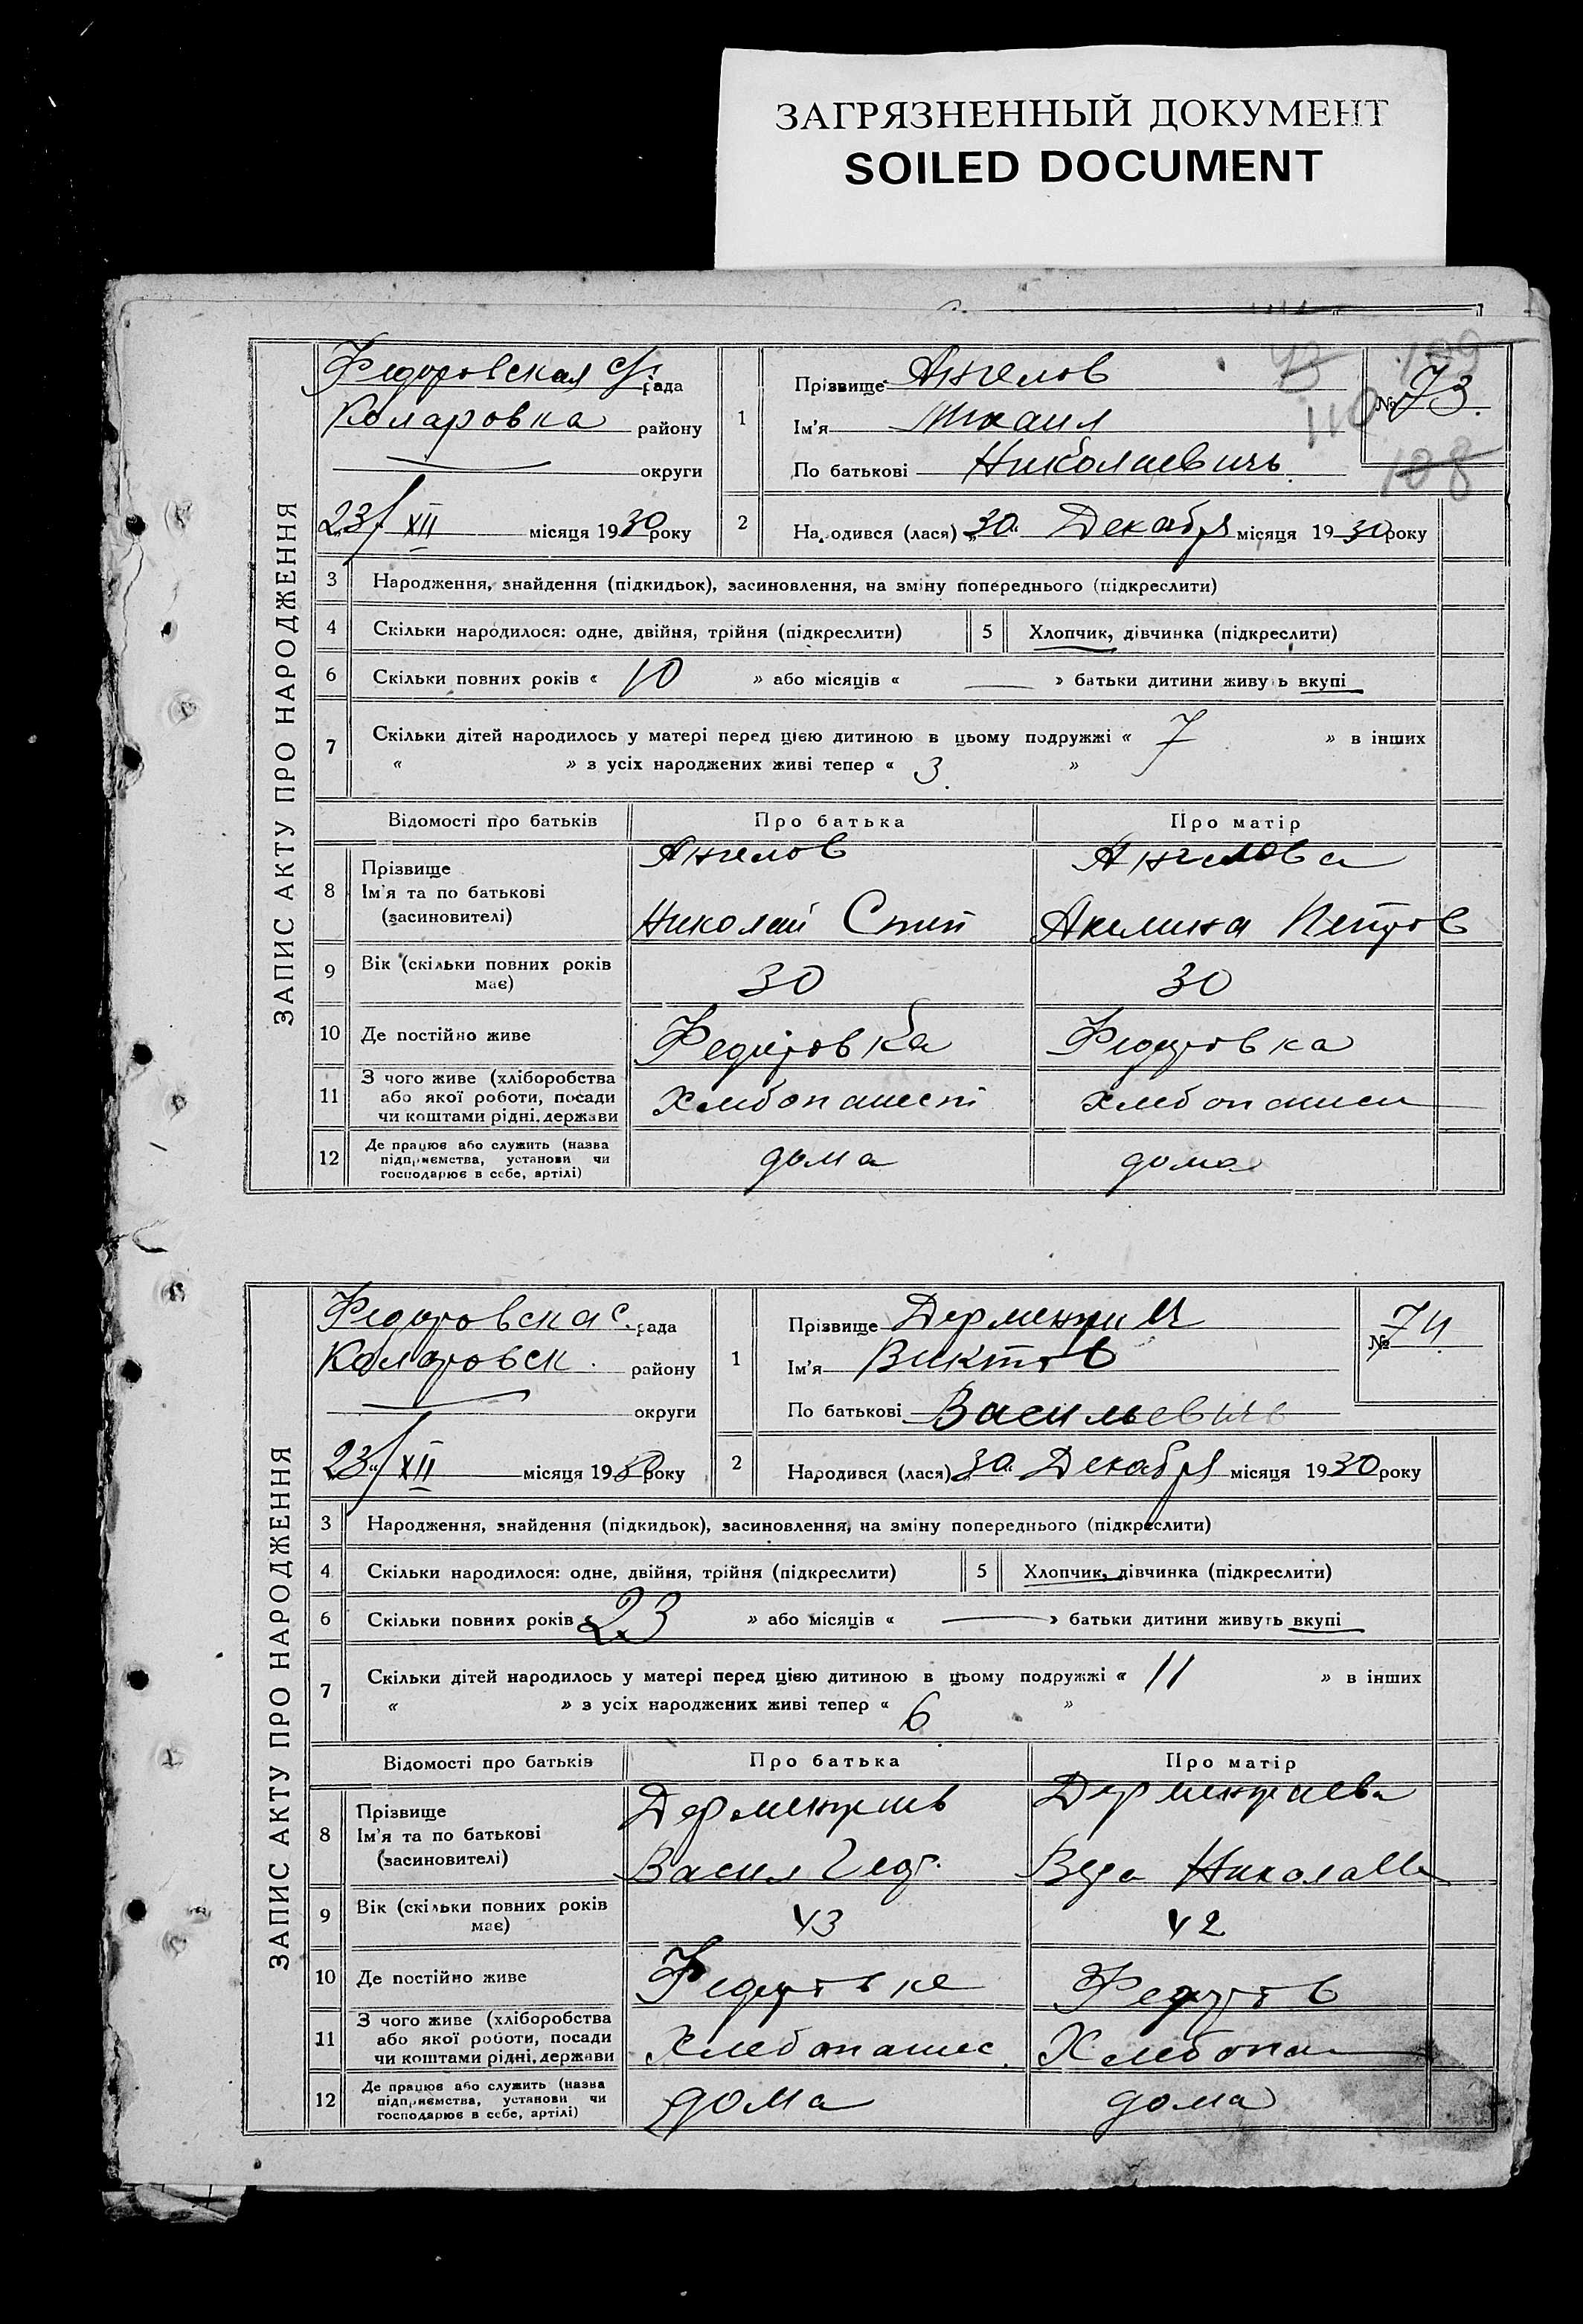 ЗАГРЯЗНЕННЫЙ ДОКУМЕНТ
SOILED DOCUMENT
ЗАПИС АКТУ ПРО НАРОДЖЕННЯ
Федоровская с/рада
Коларовка району
округи
23/XII місяця 1930 року
1
Прізвище Ангелов
Ім'я Михаил
По батькові Николаевичь
№ 73.
109
110
108
2 Народився (лася) „30“ Декабря місяця 1930 року
3 Народження, знайдення (підкидьок), засиновлення, на зміну попереднього (підкреслити)
4 Скільки народилося: одне, двійня, трійня (підкреслити) 5 Хлопчик, дівчинка (підкреслити)
6 Скільки повних років « 10 » або місяців « — » батьки дитини живуть вкупі
7 Скільки дітей народилось у матері перед цією дитиною в цьому подружжі « 7 » в інших
« » з усіх народжених живі тепер « 3 »
Відомості про батьків Про батька Про матір
8 Прізвище Ангелов Ангелова
Ім'я та по батькові
(засиновителі) Николай Степ Акилина Петров
9 Вік (скільки повних років має) 30 30
10 Де постійно живе Федоровка Федоровка
11 З чого живе (хліборобства
або якої роботи, посади Хлебопашест Хлебопашес
чи коштами рідні, держави
12 Де працює або служить (назва
підприємства, установи чи дома дома
господарює в себе, артілі)
ЗАПИС АКТУ ПРО НАРОДЖЕННЯ
Федоровска с. рада
Коларовск. району
округи
23/XII місяця 1930 року
1
Прізвище
Ім'я Виктов
По батькові Васильевичь
№ 74.
2 Народився (лася) 30. Декабря місяця 1930 року
3 Народження, знайдення (підкидьок), засиновлення, на зміну попереднього (підкреслити)
4 Скільки народилося: одне, двійня, трійня (підкреслити) 5 Хлопчик, дівчинка (підкреслити)
6 Скільки повних років « 23 » або місяців « — » батьки дитини живуть вкупі
7 Скільки дітей народилось у матері перед цією дитиною в цьому подружжі « 11 » в інших
« » з усіх народжених живі тепер « 6 »
Відомості про батьків Про батька Про матір
8 Прізвище
Ім'я та по батькові
(засиновителі) Васил Геор. Вера Николаев
9 Вік (скільки повних років має) 43 42
10 Де постійно живе Федоровке Федоров
11 З чого живе (хліборобства
або якої роботи, посади Хлебопашес Хлебопа
чи коштами рідні, держави
12 Де працює або служить (назва
підприємства, установи чи дома дома
господарює в себе, артілі)